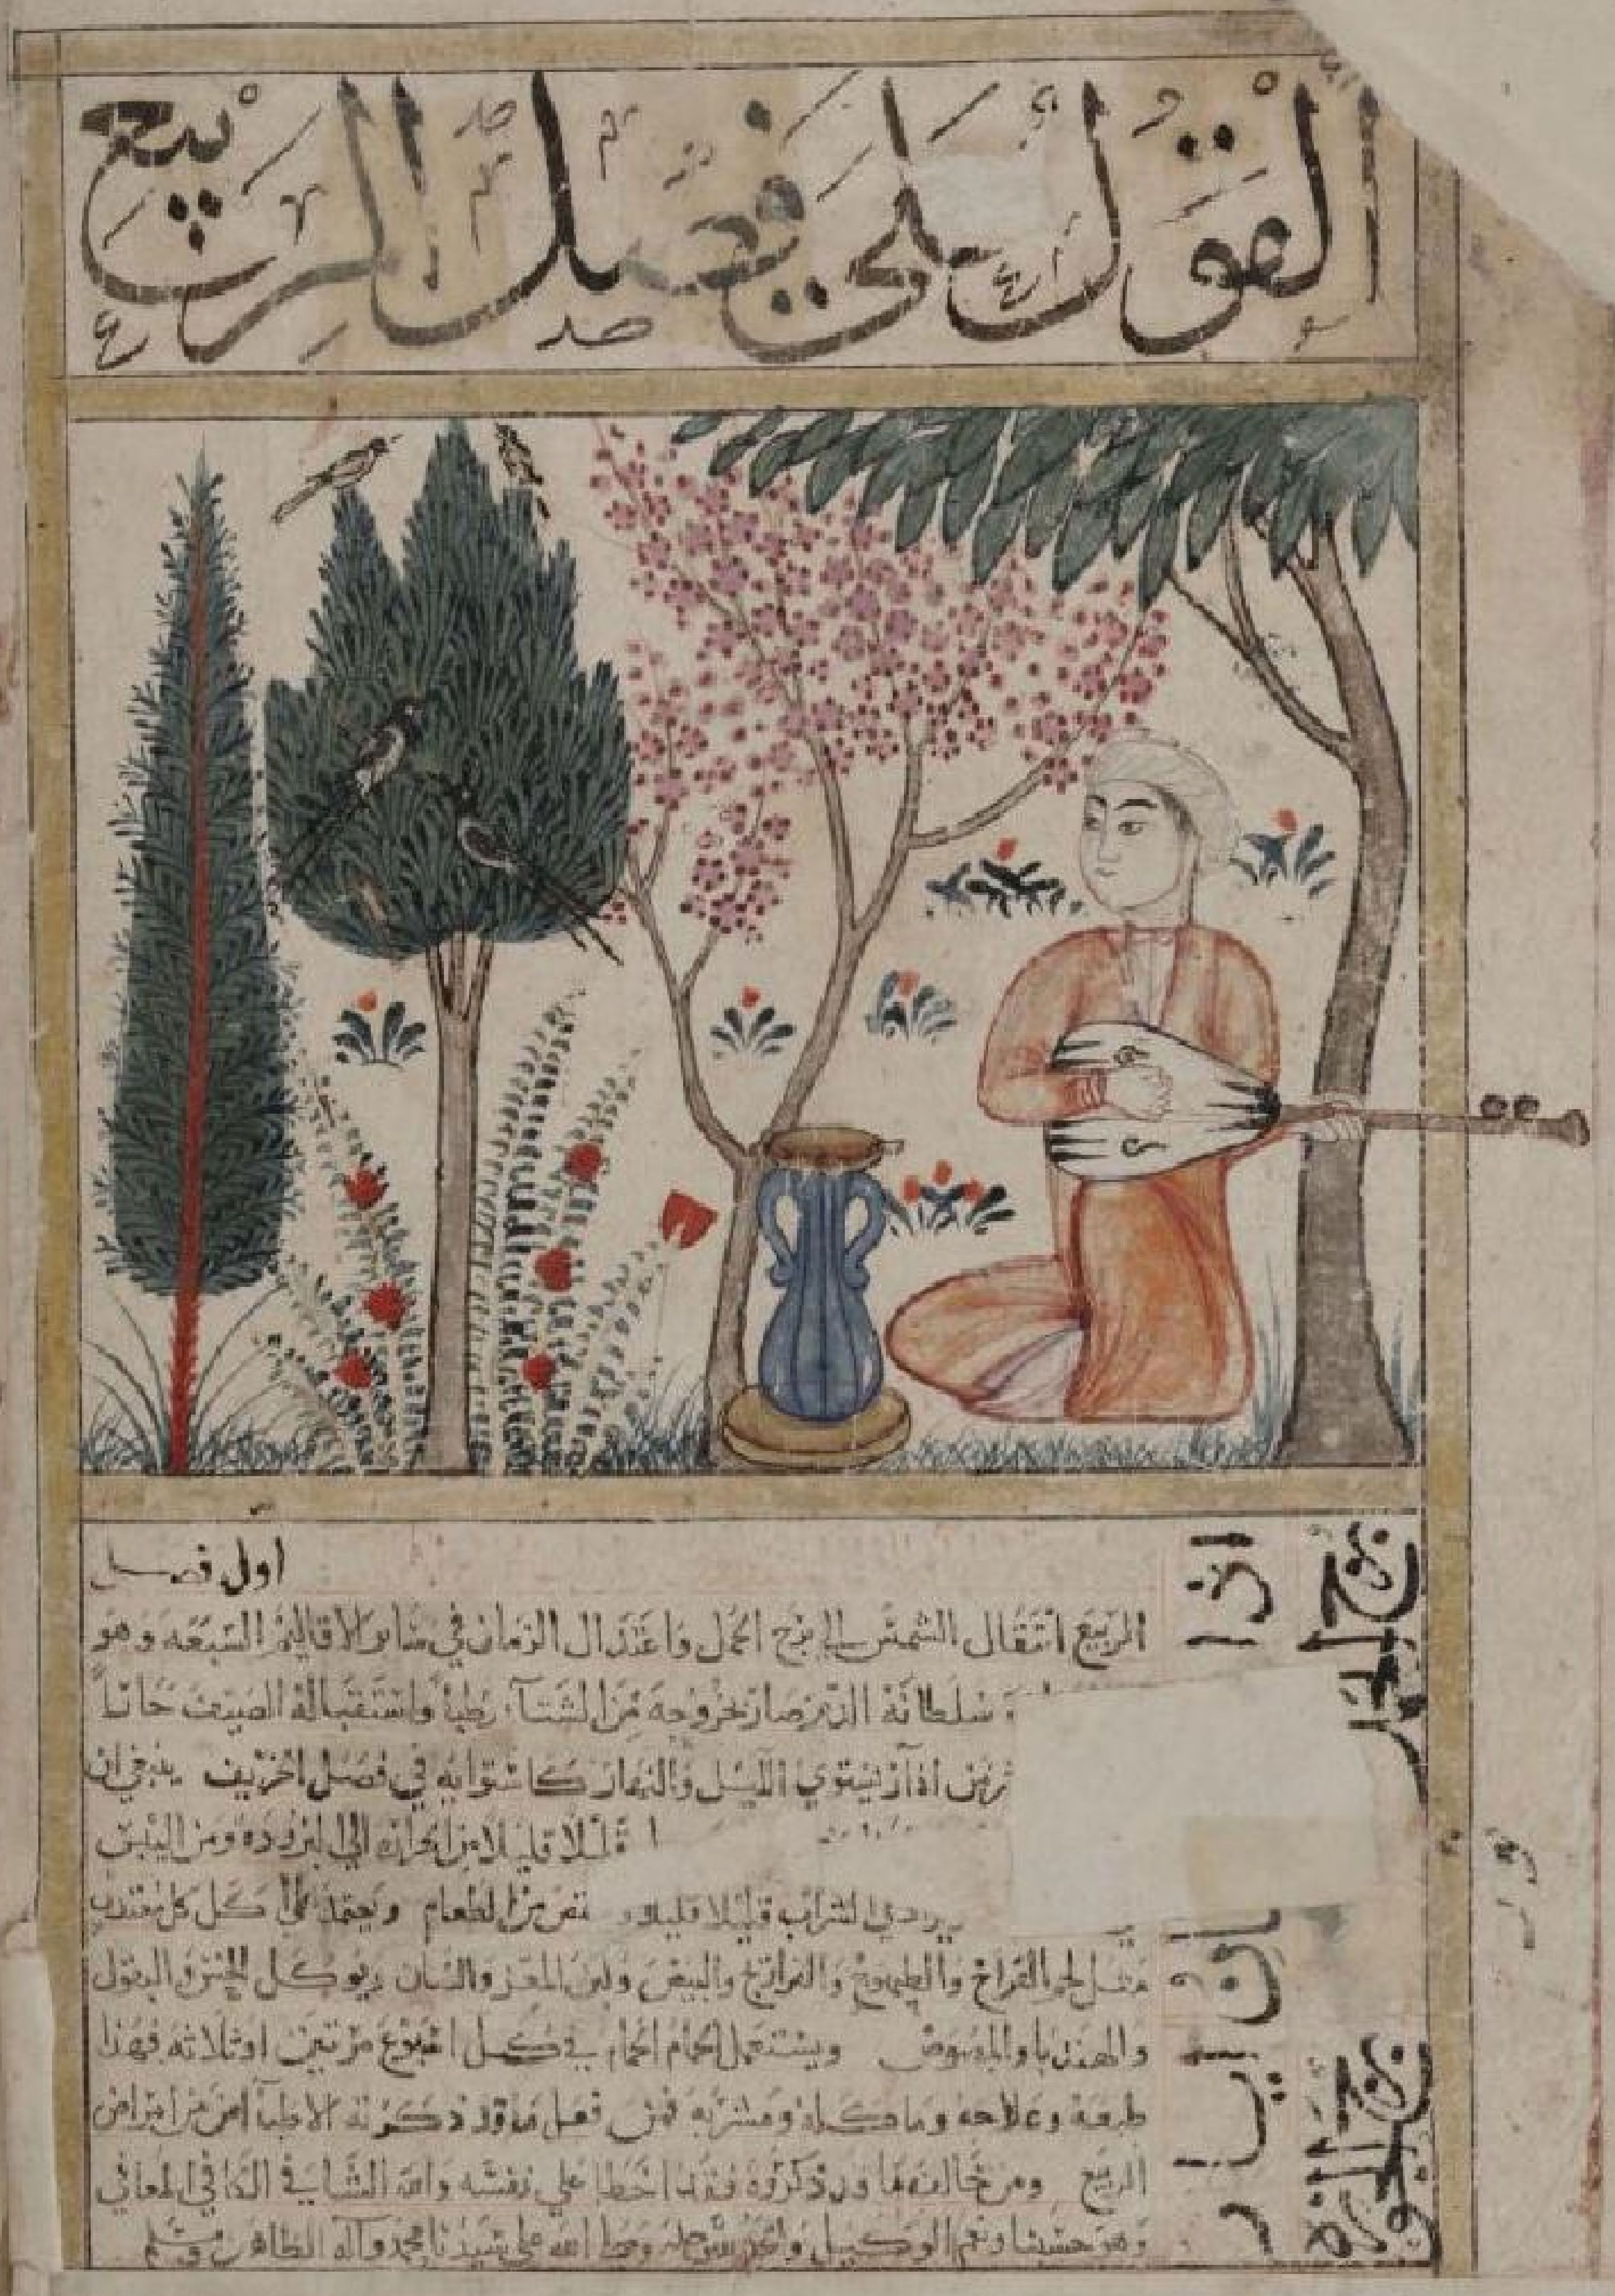 القول على فصل الربيع
اول فصل
الربيع انتقال الشمس الى برج الحمل واعتدال الزمان في سائر الاقاليم السبعه وهو
سلطانه الدم صار بخروجه من الشتآء رطباً واستقباله الصيف حاراً
اذآر يستوي الليل والنهار كاستوايه في فصل الخريف ينبغي ان
قليلا قليلا من الحراره الى البروده ومن اليبس
الشراب قليلا قليلا و من الطعام ويعتمد على اكل كل معتدل
مثل لحم الفراخ والطيهوج والفراريج والبيض ولبن المعز والضان ويوكل الخس والبقول
والهندبا والمصوص ويستعمل الحمام الحمام في كل اسبوع مرتين او ثلاثه فهذا
طبعه وعلاجه وماكله ومشربه فمن فعل ما قد ذكرته الاطبآ امن من امراض
الربيع ومن خالف ما قد ذكروه فقد اخطا على نفسه والله الشافي الكافي المعافي
وهو حسبنا ونعم الوكيل والحمد لله وحده وصلى الله على سيدنا محمد وآله الطاهرين وسلم
برج الحمل
اذا
برج الجوزا
ايار